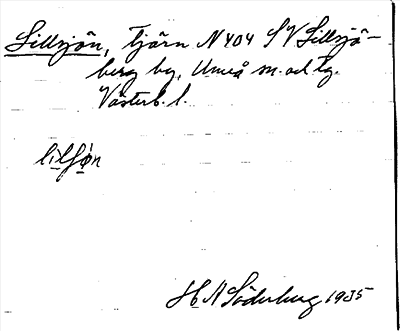 Lillsjön, Tjärn N 404 SV Lillsjö-
berg by, Umeå sn. och tg.
Västerb. l.
lilʃøn
H A Söderberg 1935